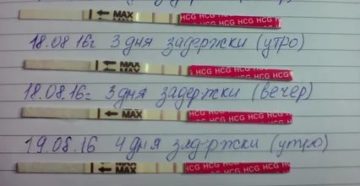 MAX HCG HCG HCG HCG HCG
18.08.16г 3 дня задержки (утро)
MAX HCG HCG HCG HCG HCG
18.08.16г 3 дня задержки (вечер)
MAX HCG HCG HCG HCG
19.08.16 4 дня задержки (утро)
MAX HCG HCG HCG HCG